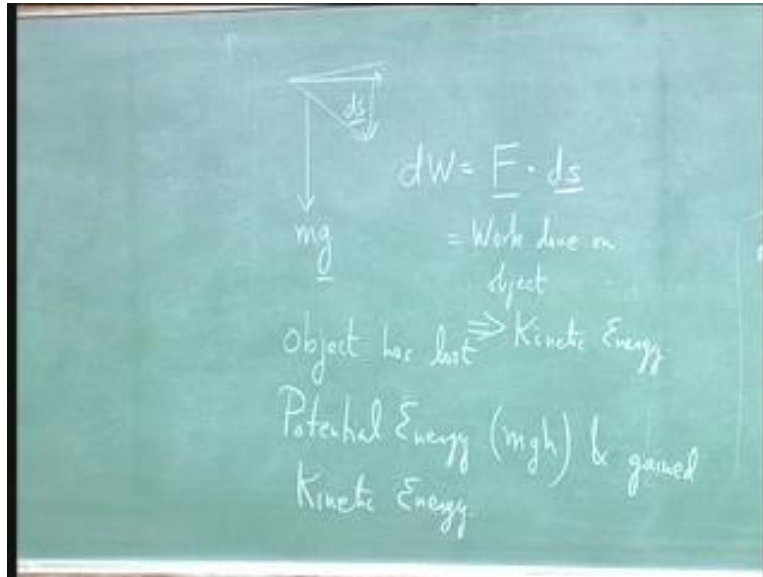 ds
mg
dW = F · ds
= Work done on
object
⇒ Kinetic Energy
Object has lost
Potential Energy (mgh) & gained
Kinetic Energy.